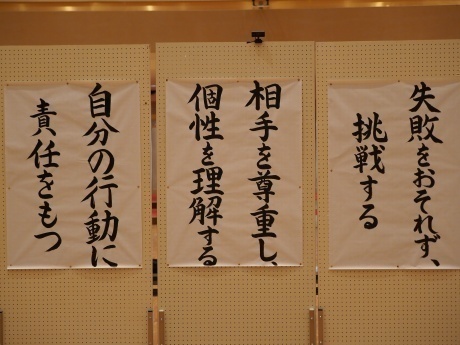 失敗をおそれず、
挑戦する
相手を尊重し、
個性を理解する
自分の行動に
責任をもつ